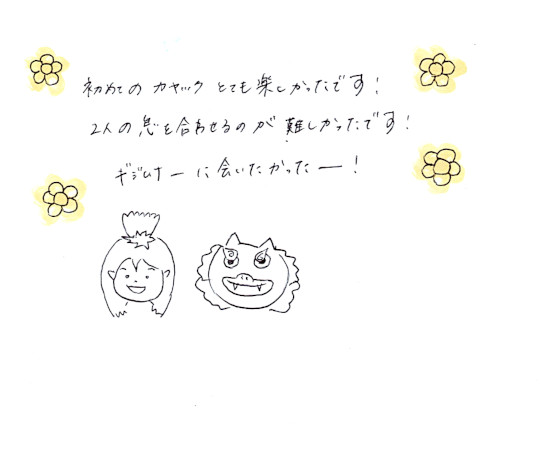 初めてのカヤックとても楽しかったです!
2人の息を合わせるのが難しかったです!
ギジムナーに会いたかったー!